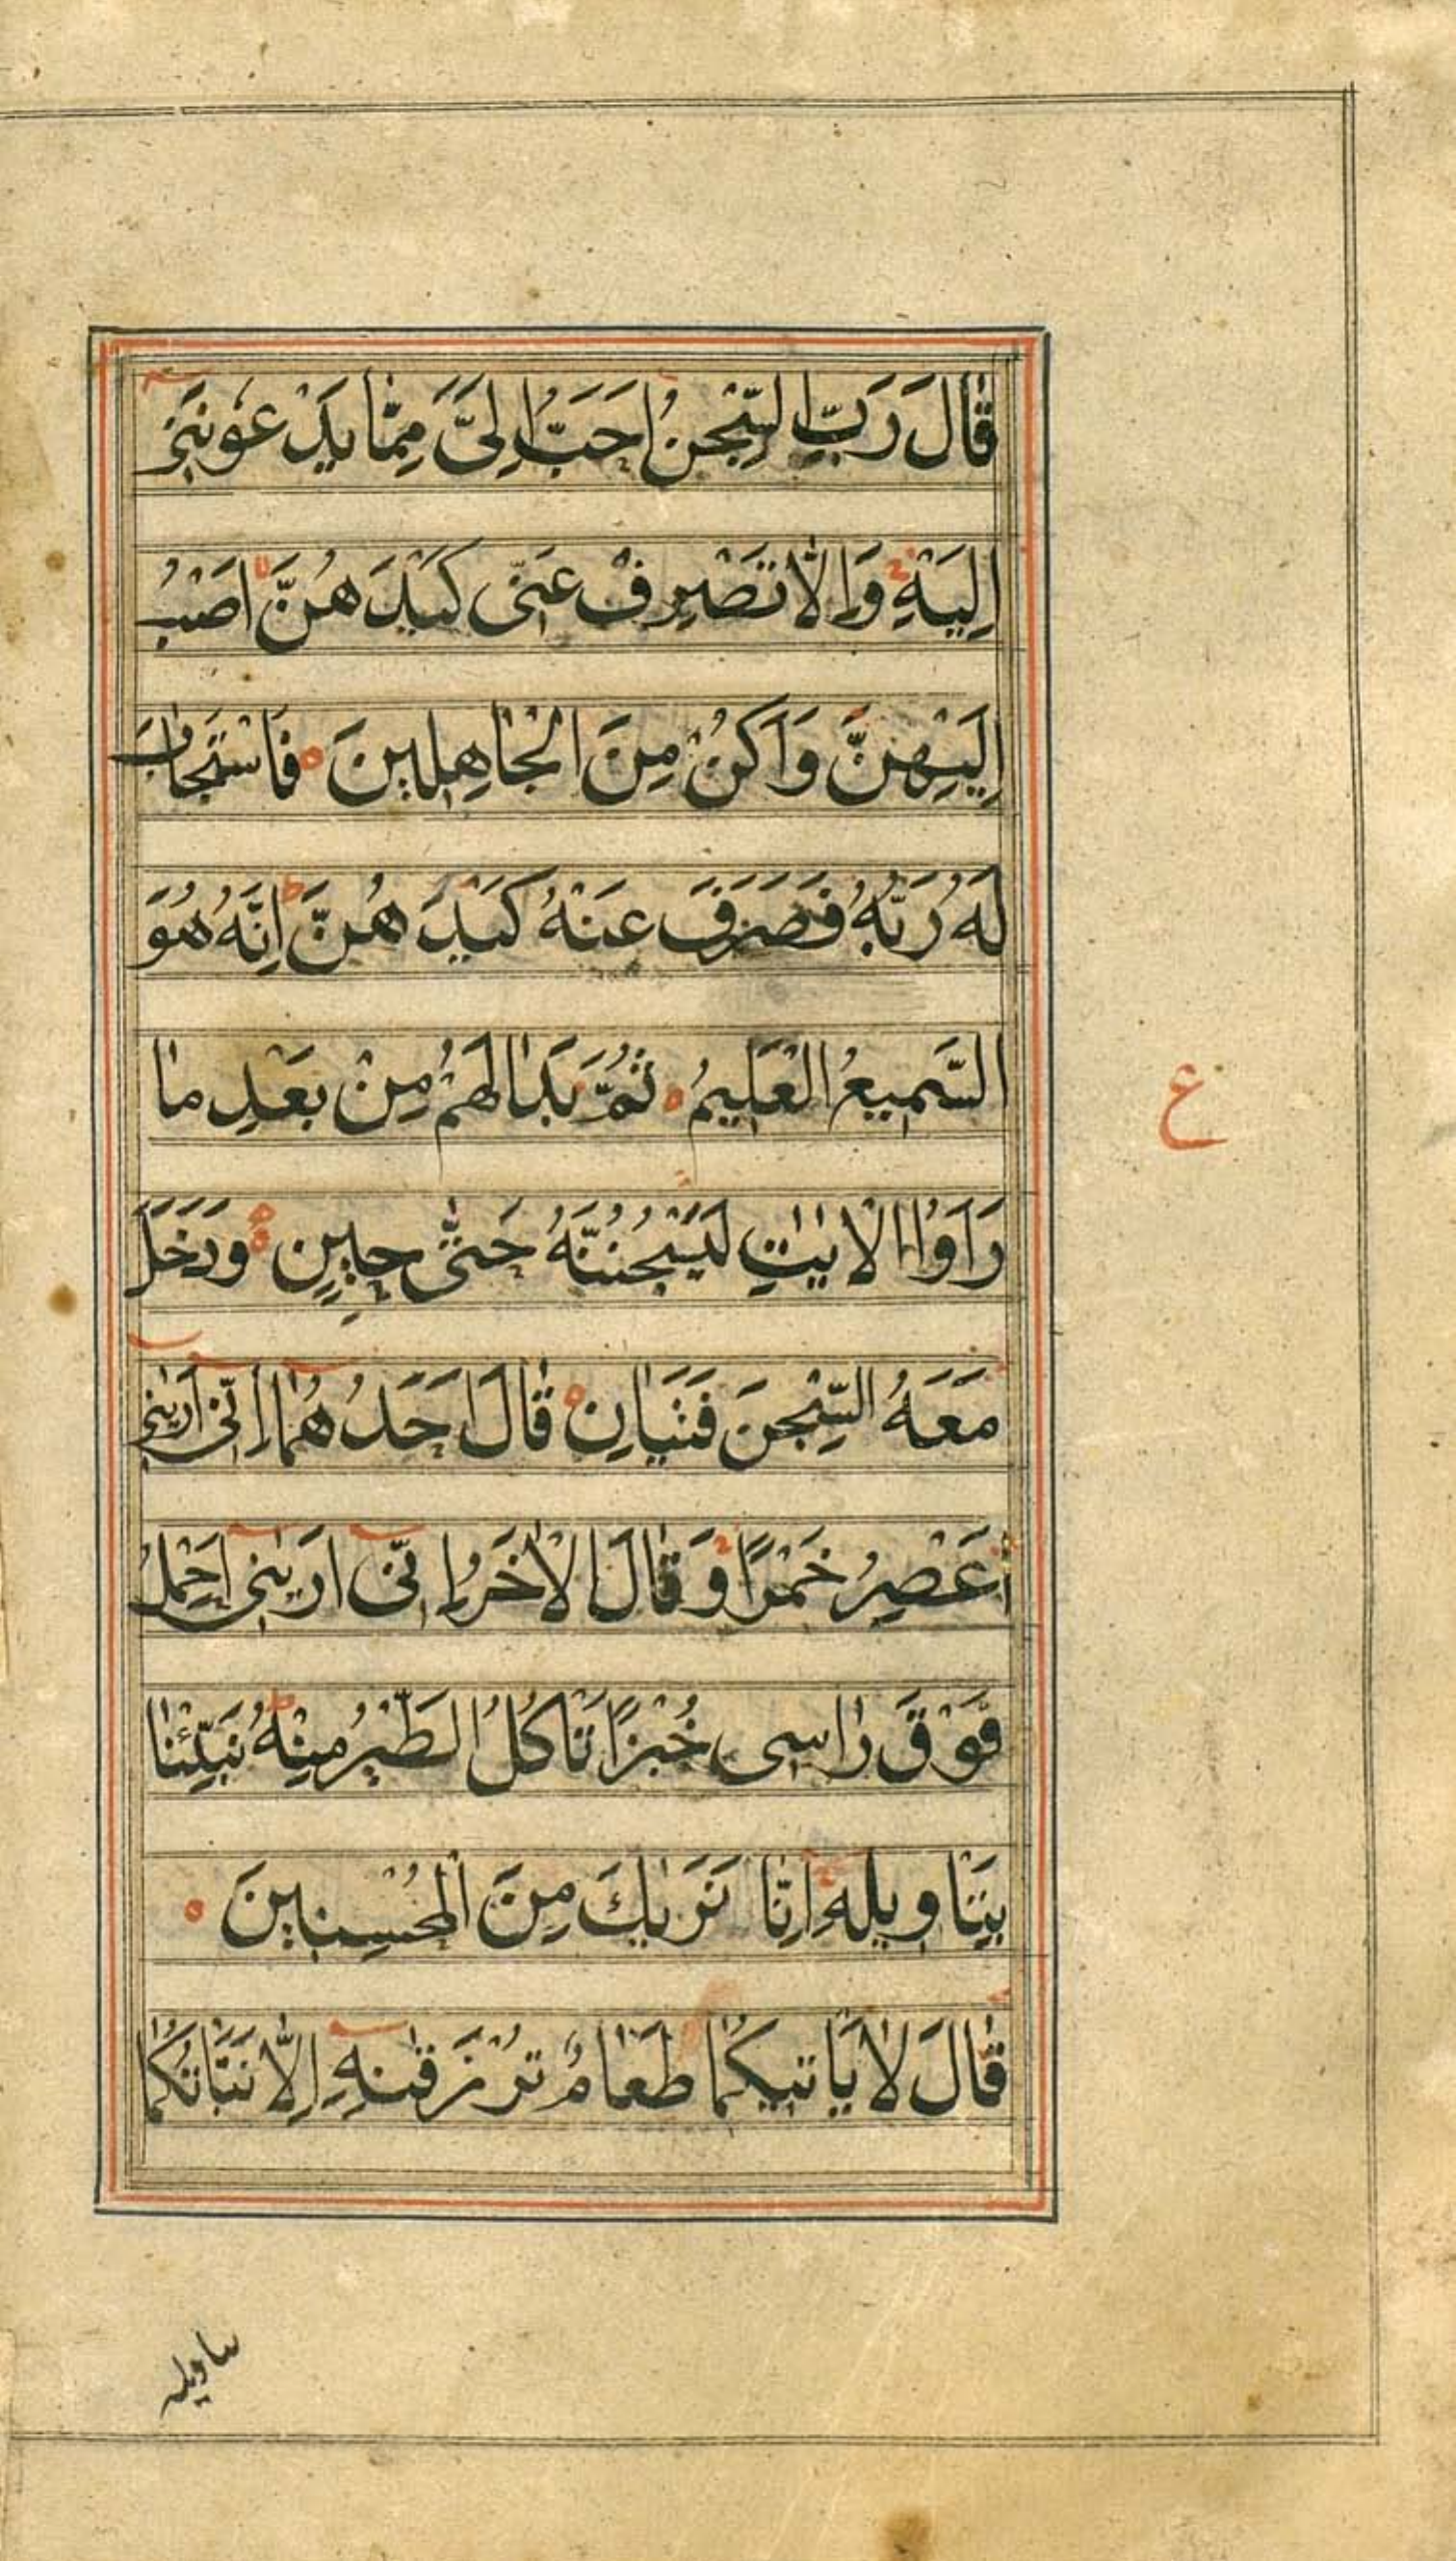 قَالَ رَبِّ السِّجْنُ اَحَبُّ اِلَىَّ مِمَّا يَدْعُونَنِىْ
اِلَيْهِ وَاِلَّا تَصْرِفْ عَنِّى كَيْدَهُنَّ اَصْبُ
اِلَيْهِنَّ وَاَكُنْ مِنَ الْجَاهِلِينَ ه فَاسْتَجَابَ
لَهُ رَبُّهُ فَصَرَفَ عَنْهُ كَيْدَهُنَّ ط اِنَّهُ هُوَ
السَّمِيعُ الْعَلِيمُ ه ثُمَّ بَدَا لَهُمْ مِنْ بَعْدِ مَا
ع
رَاَوُا الْاٰيٰتِ لَيَسْجُنُنَّهُ حَتّٰى حِينٍ ه وَدَخَلَ
مَعَهُ السِّجْنَ فَتَيَانِ ه قَالَ اَحَدُهُمَا اِنِّى اَرٰينِى
اَعْصِرُ خَمْرًا وَقَالَ الْاٰخَرُ اِنِّى اَرٰينِى اَحْمِلُ
فَوْقَ رَاسِى خُبْزًا تَاكُلُ الطَّيْرُ مِنْهُ ط نَبِّئْنَا
بِتَاوِيلِهِ اِنَّا نَرٰيكَ مِنَ الْمُحْسِنِينَ ه
قَالَ لَا يَاتِيكُمَا طَعَامٌ تُرْزَقٰنِهِ اِلَّا نَبَّاتُكُمَا
بتاويله